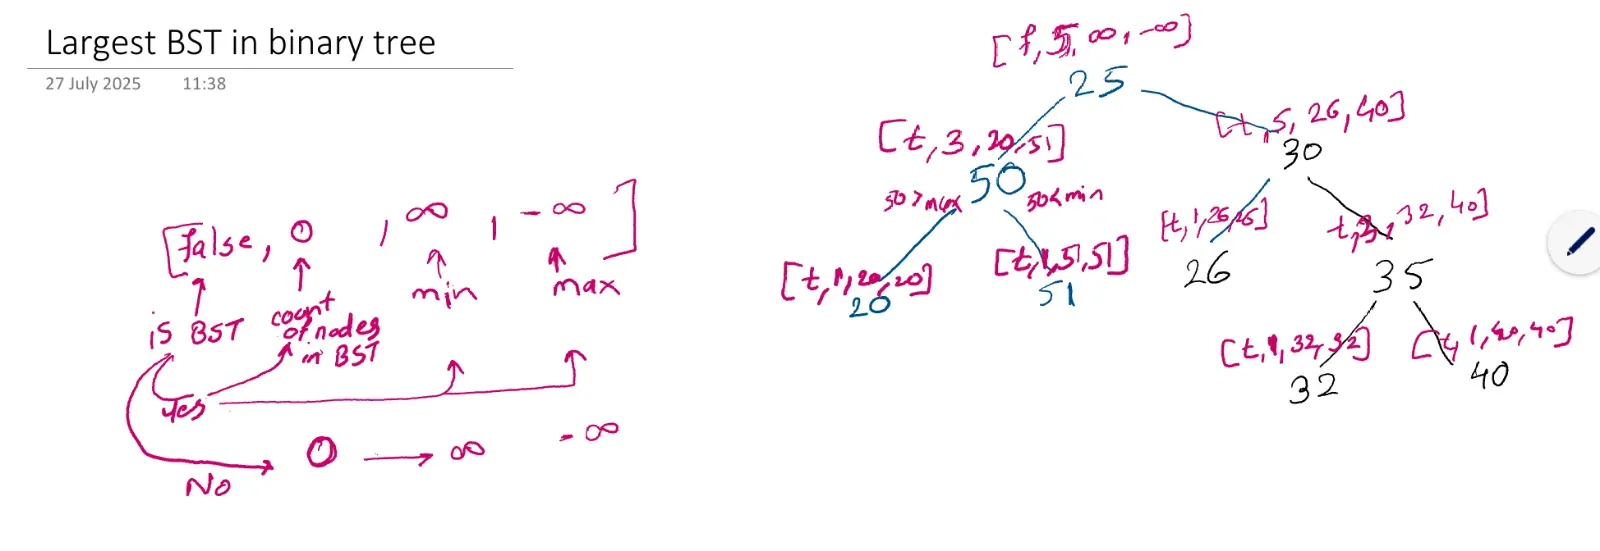 Largest BST in binary tree
27 July 2025 11:38
[false, 0 , ∞ , -∞ ]
is BST
count of nodes in BST
min
max
Yes
No
0 ∞ -∞
[f, 5, ∞, -∞]
25
[t, 3, 20, 51]
50
50 > max
50 < min
[t, 1, 20, 20]
20
[t, 1, 51, 51]
51
[t, 5, 26, 40]
30
[t, 1, 26, 26]
26
t, 3, 32, 40]
35
[t, 1, 32, 32]
32
[t, 1, 40, 40]
40